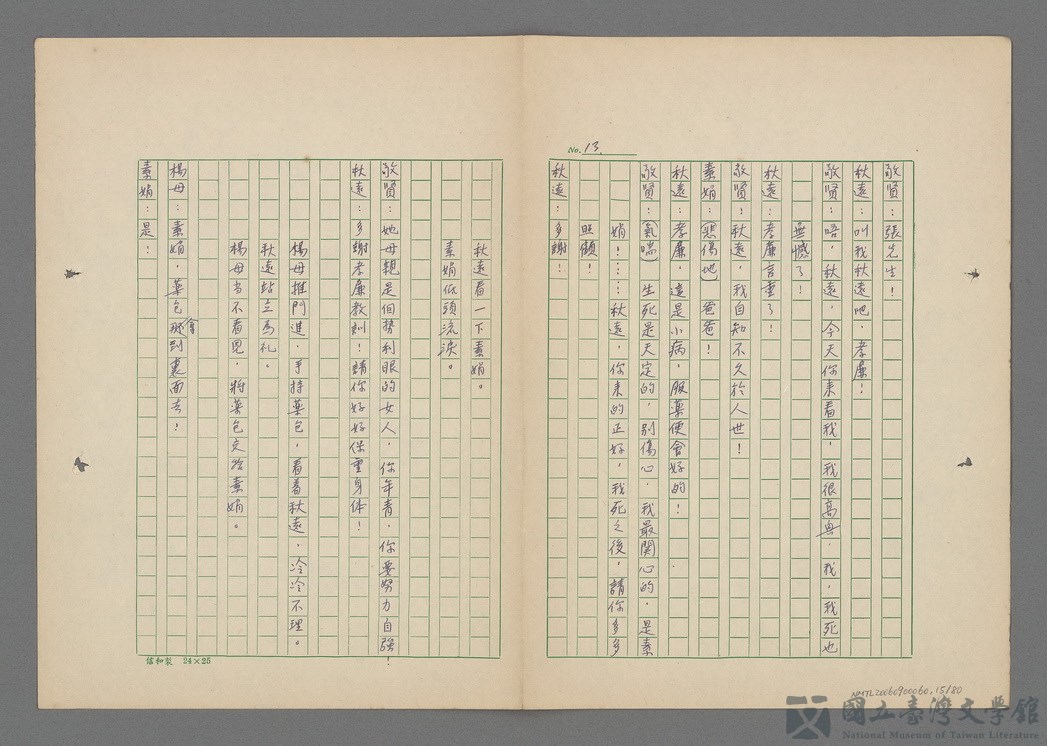 No. 13.
敬賢：張先生！
秋遠：叫我秋遠吧，孝廉！
敬賢：唔，秋遠，今天你来看我，我很高興，我，我死也
無憾了！
秋遠：孝廉言重了！
敬賢：秋遠，我自知不久於人世！
素娟：（悲傷地）爸爸！
秋遠：孝廉，這是小病，服藥便會好的！
敬賢：（氣喘）生死是天定的，別傷心，我最関心的，是素
娟！……秋遠，你来的正好，我死之後，請你多多
照顧！
秋遠：多謝！
秋遠看一下素娟。
素娟低頭流淚。
敬賢：她母親是個勢利眼的女人，你年青，你要努力自強！
秋遠：多謝孝廉教訓！請你好好保重身体！
楊母推門進，手持藥包，看看秋遠，冷冷不理。
秋遠站立為礼。
楊母当不看見，將藥包交给素娟。
楊母：素娟，藥包拿到裏面去！
素娟：是！
信和製 24×25
NMTL20060900060.15/80
國立臺灣文學館
National Museum of Taiwan Literature